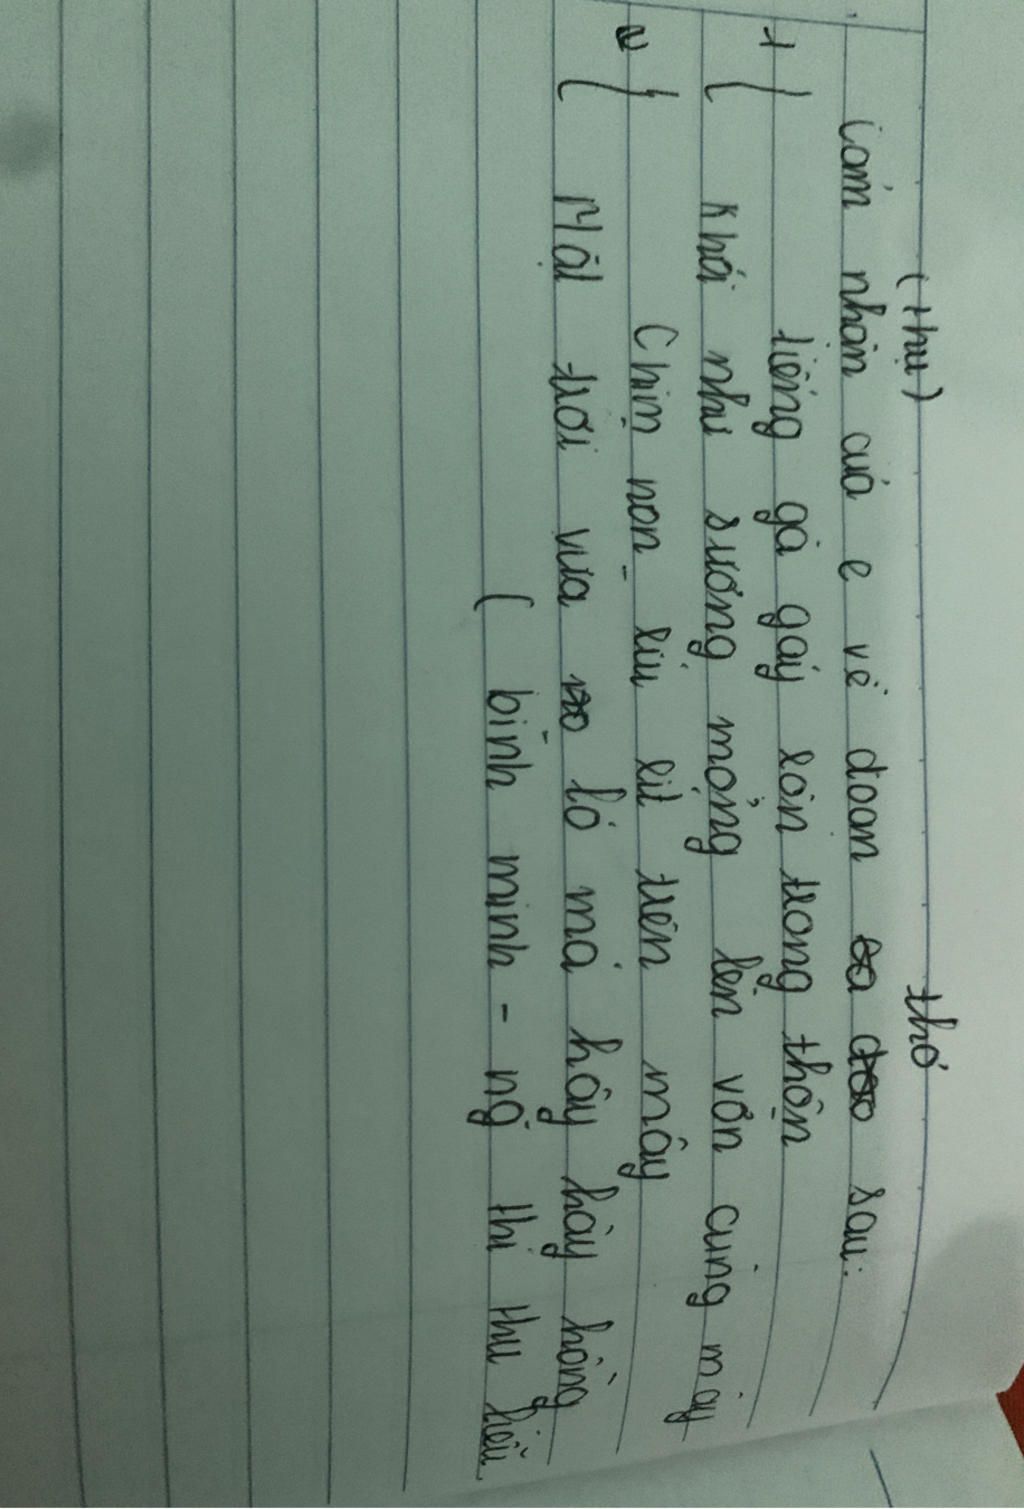 (thụ)
thơ
Cảm nhận của e về đoạn sau:
1 { tiếng gà gáy ròn trong thôn
Khói như sương mỏng lên vờn cùng mây
2 { Chim non líu lít trên mây
Mặt trời vừa ló má hây hây hồng
( bình minh - ng thị thu hiền